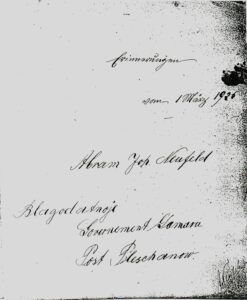 Erinnerungen
vom 1 März 192
Abram Joh. Neufeld
Blagodatnoje
Gouvernement Samara
Post Pleschanow.